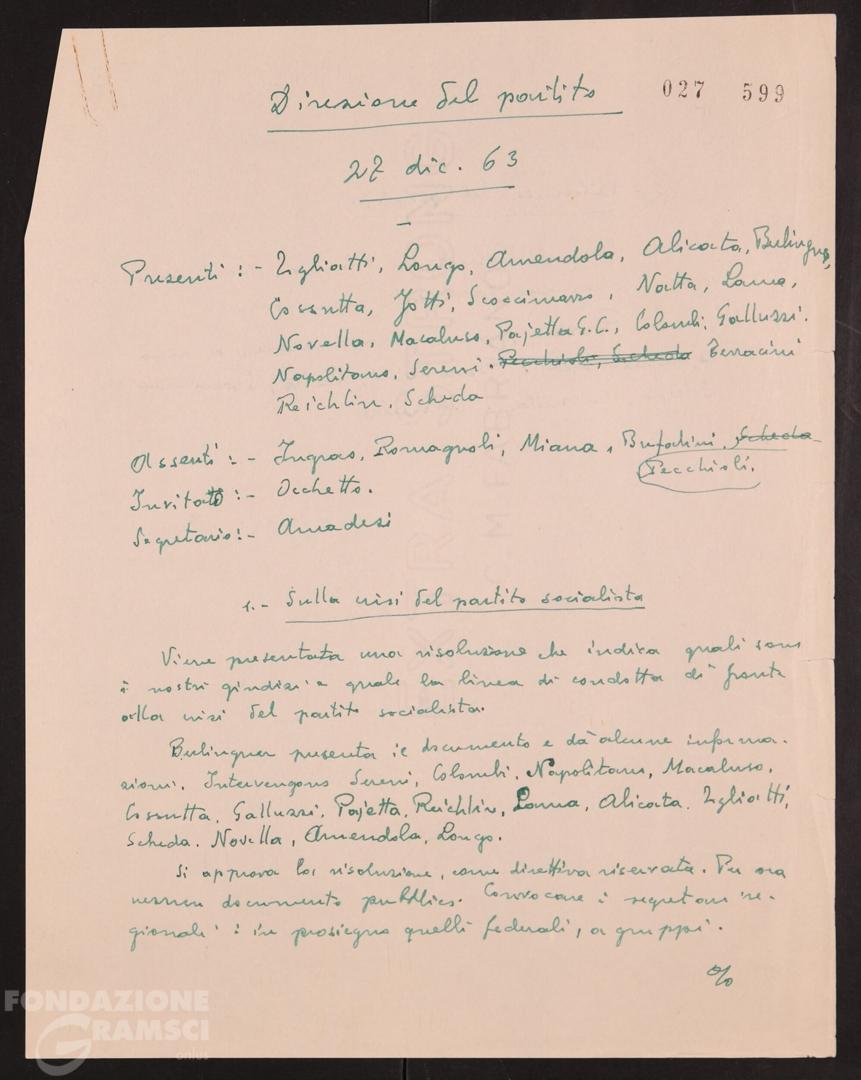 027 599
Direzione del partito
27 dic. 63
Presenti :- Togliatti, Longo, Amendola, Alicata, Berlinguer,
Cossutta, Jotti, Scoccimarro, Natta, Lama,
Novella, Macaluso, Pajetta G.C., Colombi, Galluzzi,
Napolitano, Sereni. Pecchioli, Scheda Terracini
Reichlin, Scheda
Assenti :- Ingrao, Romagnoli, Miana, Bufalini, Scheda
Pecchioli.
Invitato :- Occhetto.
Segretario :- Amadesi
1.- Sulla crisi del partito socialista
Viene presentata una risoluzione che indica quali sono
i nostri giudizi e quale la linea di condotta di fronte
alla crisi del partito socialista.
Berlinguer presenta il documento e dà alcune informa-
zioni. Intervengono Sereni, Colombi, Napolitano, Macaluso,
Cossutta, Galluzzi, Pajetta, Reichlin, Lama, Alicata, Togliatti,
Scheda, Novella, Amendola, Longo.
Si approva la risoluzione, come direttiva riservata. Per ora
nessun documento pubblico. Convocare i segretari re-
gionali : in prosieguo quelli federali, a gruppi.
%
FONDAZIONE
GRAMSCI
onlus